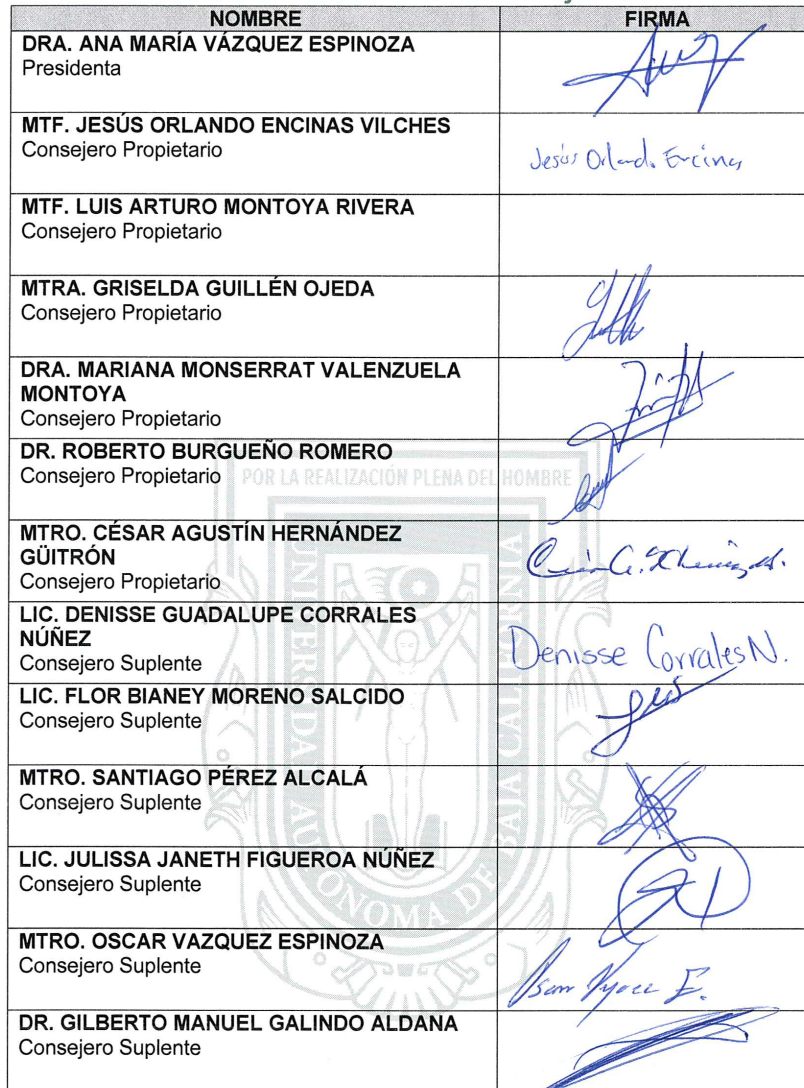 NOMBRE FIRMA
DRA. ANA MARÍA VÁZQUEZ ESPINOZA
Presidenta
MTF. JESÚS ORLANDO ENCINAS VILCHES
Consejero Propietario
Jesús Orlando Encinas
MTF. LUIS ARTURO MONTOYA RIVERA
Consejero Propietario
MTRA. GRISELDA GUILLÉN OJEDA
Consejero Propietario
DRA. MARIANA MONSERRAT VALENZUELA
MONTOYA
Consejero Propietario
DR. ROBERTO BURGUEÑO ROMERO
Consejero Propietario
POR LA REALIZACIÓN PLENA DEL HOMBRE
MTRO. CÉSAR AGUSTÍN HERNÁNDEZ
GÜITRÓN
Consejero Propietario
LIC. DENISSE GUADALUPE CORRALES
NÚÑEZ
Consejero Suplente
Denisse Corrales N.
LIC. FLOR BIANEY MORENO SALCIDO
Consejero Suplente
MTRO. SANTIAGO PÉREZ ALCALÁ
Consejero Suplente
LIC. JULISSA JANETH FIGUEROA NÚÑEZ
Consejero Suplente
MTRO. OSCAR VAZQUEZ ESPINOZA
Consejero Suplente
DR. GILBERTO MANUEL GALINDO ALDANA
Consejero Suplente
UNIVERSIDAD AUTÓNOMA DE BAJA CALIFORNIA